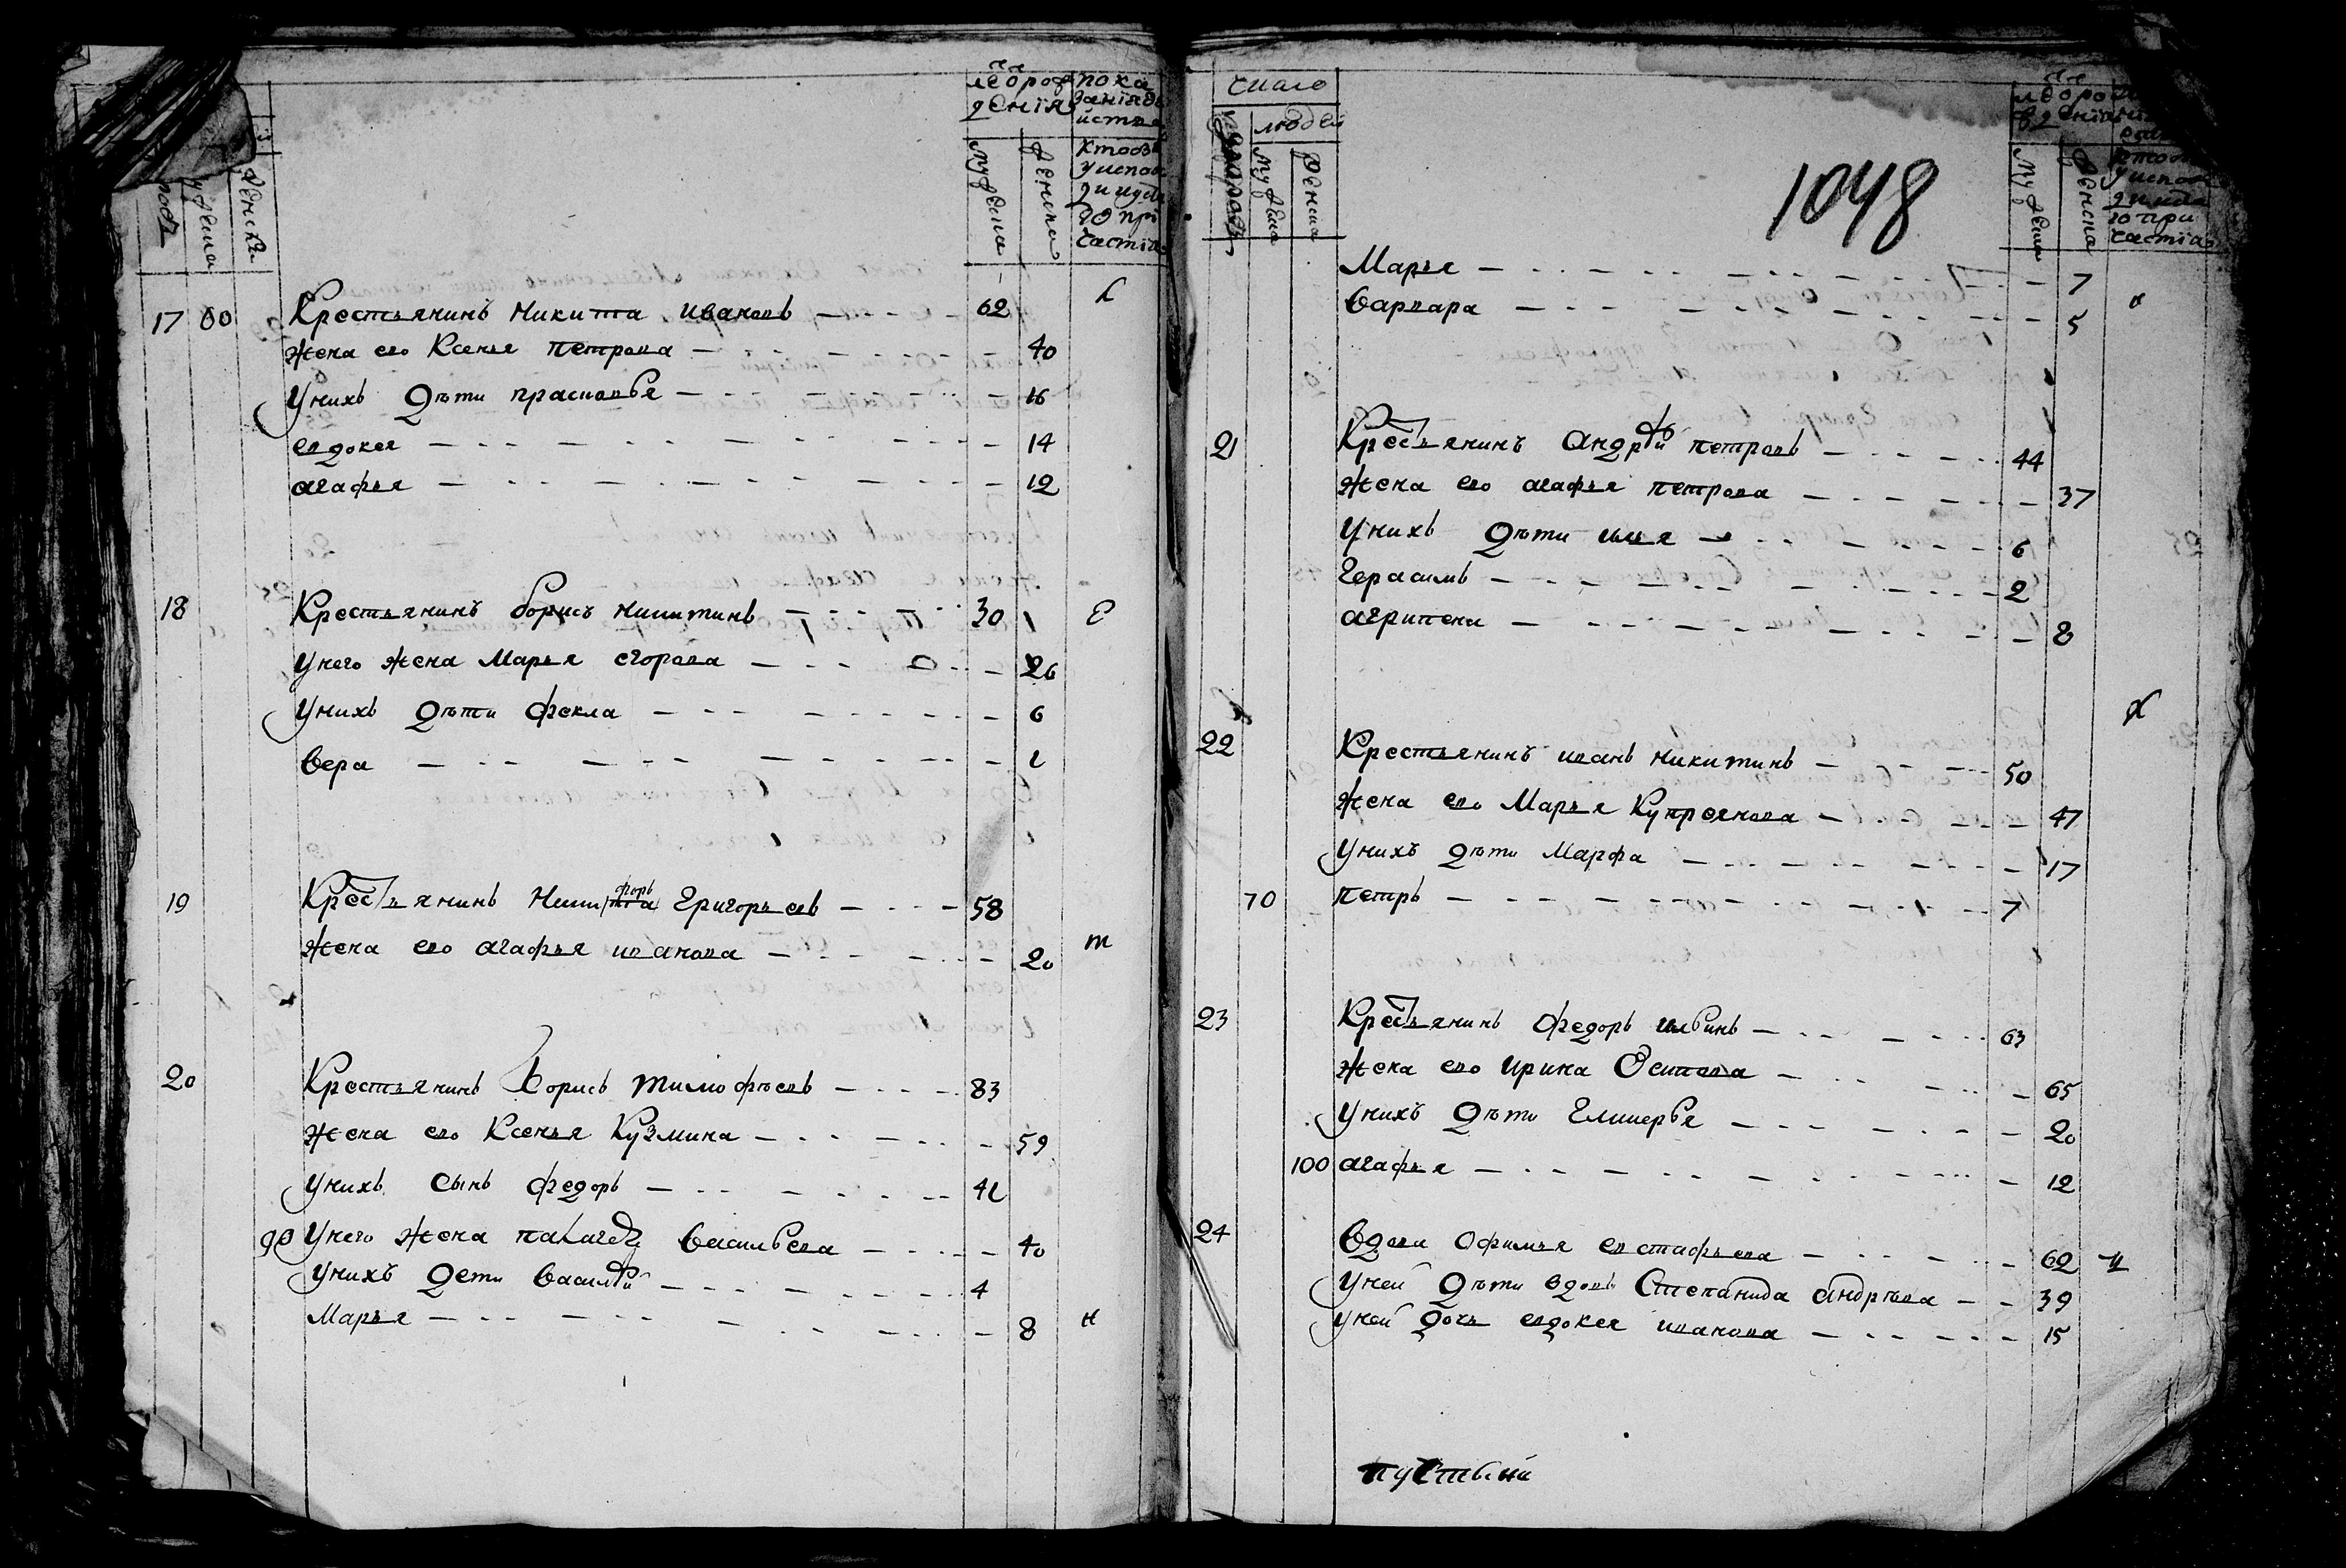 лѣ рож
денїя
пока
занїя дѣ
иства
мужеска
женска
кто бы
у испов
ди и у св
го при
частїя
мужеска
женска
17 60 Крестьянинъ Никита Ивановъ 62
Жена его Ксенья Петрова 40
У нихъ дѣти Прасковья 16
Евдокея 14
Агафья 12
18 Крестьянинъ Борисъ Никитинъ 30
У него жена Марья Егорова 26
У нихъ дѣти Фекла 6
Вера 1
19 Крестьянинъ Никифоръ Григорьевъ 58
Жена его Агафья Иванова 20
20 Крестьянинъ Борисъ Тимофѣевъ 83
Жена его Ксенья Кузмина 59
У нихъ сынъ Федоръ 41
90 У него жена Палагея Васильева 40
У нихъ дети Василей 4
Марья 8
число
людей
мужеска
женска
1048
мужеска
женска
Марья 7
Варвара 5
21 Крестьянинъ Андрѣй Петровъ 44
Жена его Агафья Петрова 37
У нихъ дѣти Илья 6
Герасимъ 2
Агрипена 8
22 Крестьянинъ Иванъ Никитинъ 50
Жена его Марья Купреянова 47
У нихъ дѣти Марфа 17
70 Петръ 7
23 Крестьянинъ Федоръ Ильинъ 63
Жена его Ирина Осипова 65
У нихъ дѣти Гликерья 20
100 Агафья 12
24 Вдова Офимья Евстафьева 62
У ней дѣти вдовъ Степанида Андрѣева 39
У ней дочь Евдокея Иванова 15
пустынй